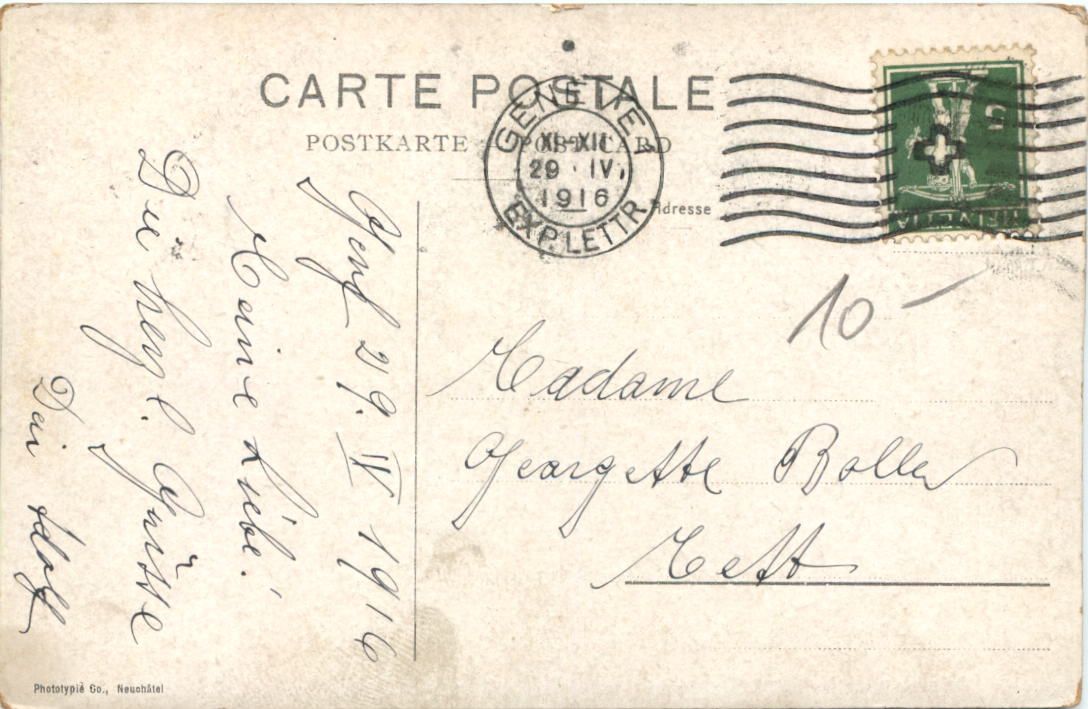 CARTE POSTALE
POSTKARTE - POST-CARD
GENÈVE 1
XI-XII
29 · IV,
1916
EXP. LETTR.
Adresse
5
HELVETIA
10 —
Genf 29. IV 1916
Meine Liebe!
Die herzl. Grüsse
Dein Adolf
Madame
Georgette Boller
Mett
Phototypie Co., Neuchâtel